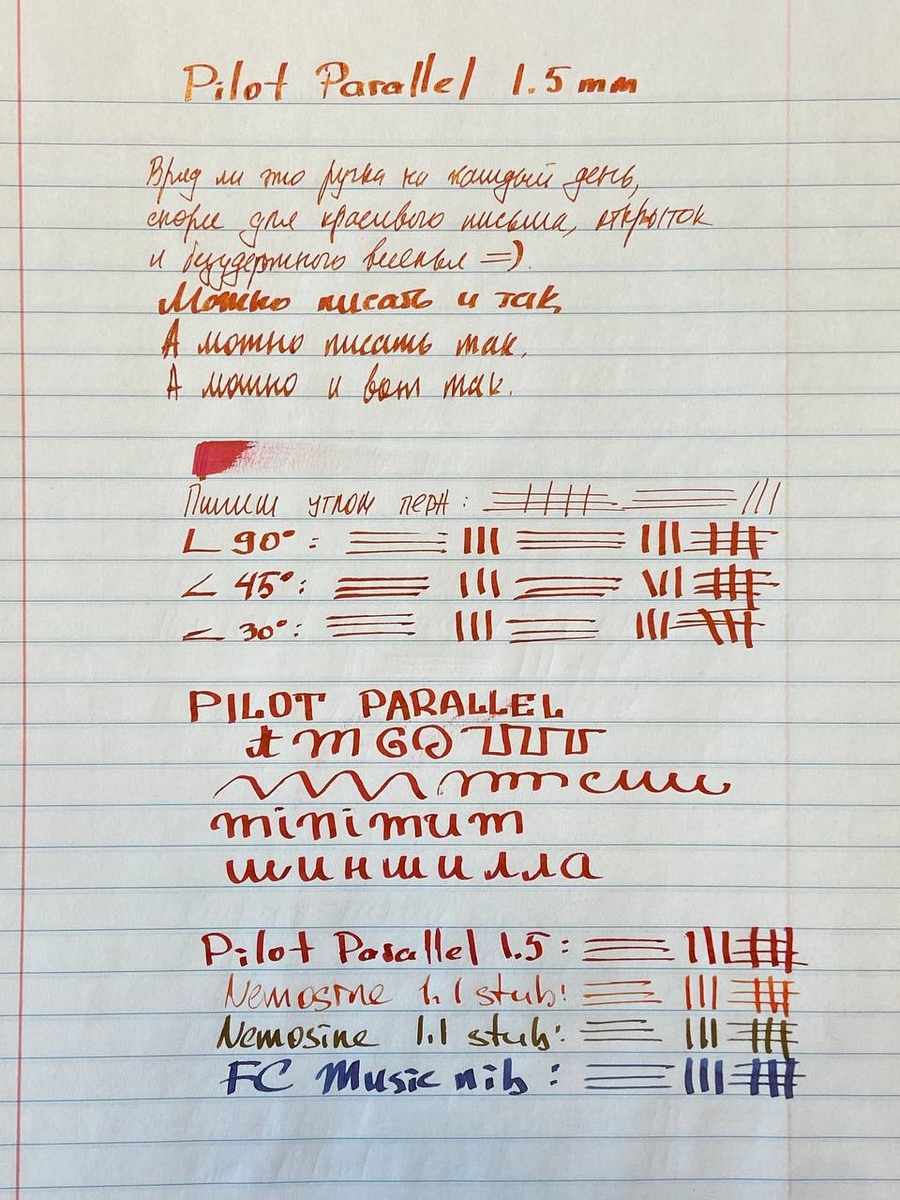 Pilot Parallel 1.5 mm
Вряд ли это ручка на каждый день,
скорее для красивого письма, открыток
и безудержного веселья =).
Можно писать и так,
А можно писать так,
А можно и вот так.
Пишем углом пера:
∠ 90°:
∠ 45°:
∠ 30°:
PILOT PARALLEL
minimum
шиншилла
Pilot Parallel 1.5:
Nemosine 1.1 stub:
Nemosine 1.1 stub:
FC Music nib: